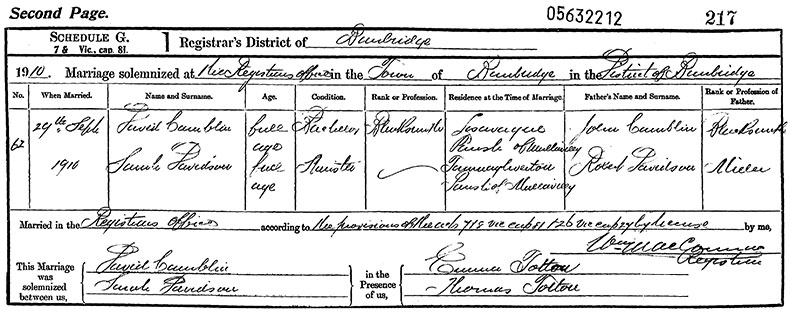 Second Page.
05632212
217
SCHEDULE G.
7 & Vic., cap. 81.
Registrar's District of Banbridge
1910. Marriage solemnized at the Registrars office in the Town of Banbridge in the District of Banbridge
No. When Married. Name and Surname. Age. Condition. Rank or Profession. Residence at the Time of Marriage. Father's Name and Surname. Rank or Profession of Father.
62 29th Sept David Camblin full age Bachelor Blacksmith Parish of John Camblin Blacksmith
1910 Sarah Davidson full age Spinster Parish of Robert Davidson
Married in the Registrars office according to the provisions of the acts by license by me,
Wm
Registrar
This Marriage was solemnized between us,
David Camblin
Sarah Davidson
in the Presence of us,
Emma Totton
Thomas Totton